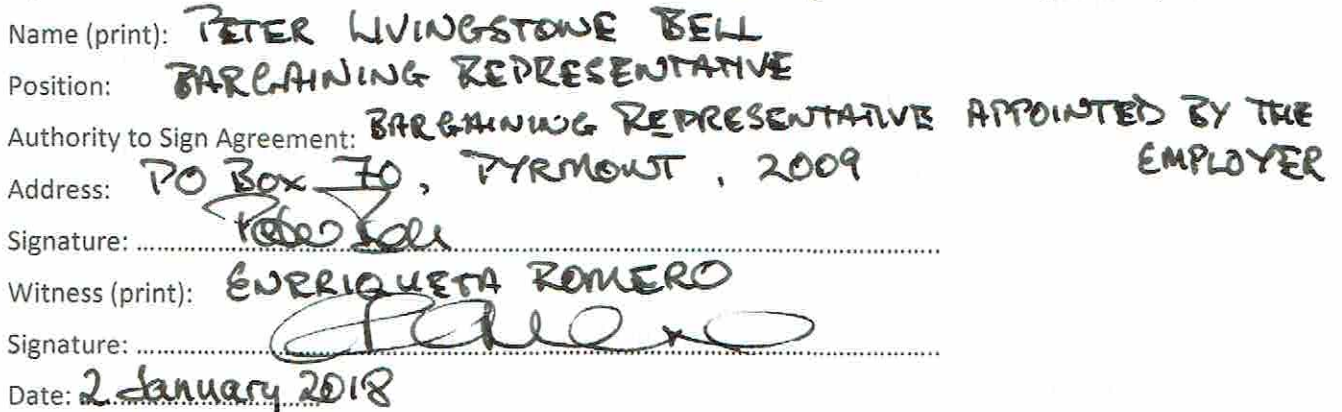 Name (print): PETER LIVINGSTONE BELL
Position: BARGAINING REPRESENTATIVE
Authority to Sign Agreement: BARGAINING REPRESENTATIVE APPOINTED BY THE
EMPLOYER
Address: PO Box 70, PYRMONT, 2009
Signature: Peter Bell
Witness (print): ENRRIQUETA ROMERO
Signature:
Date: 2 January 2018